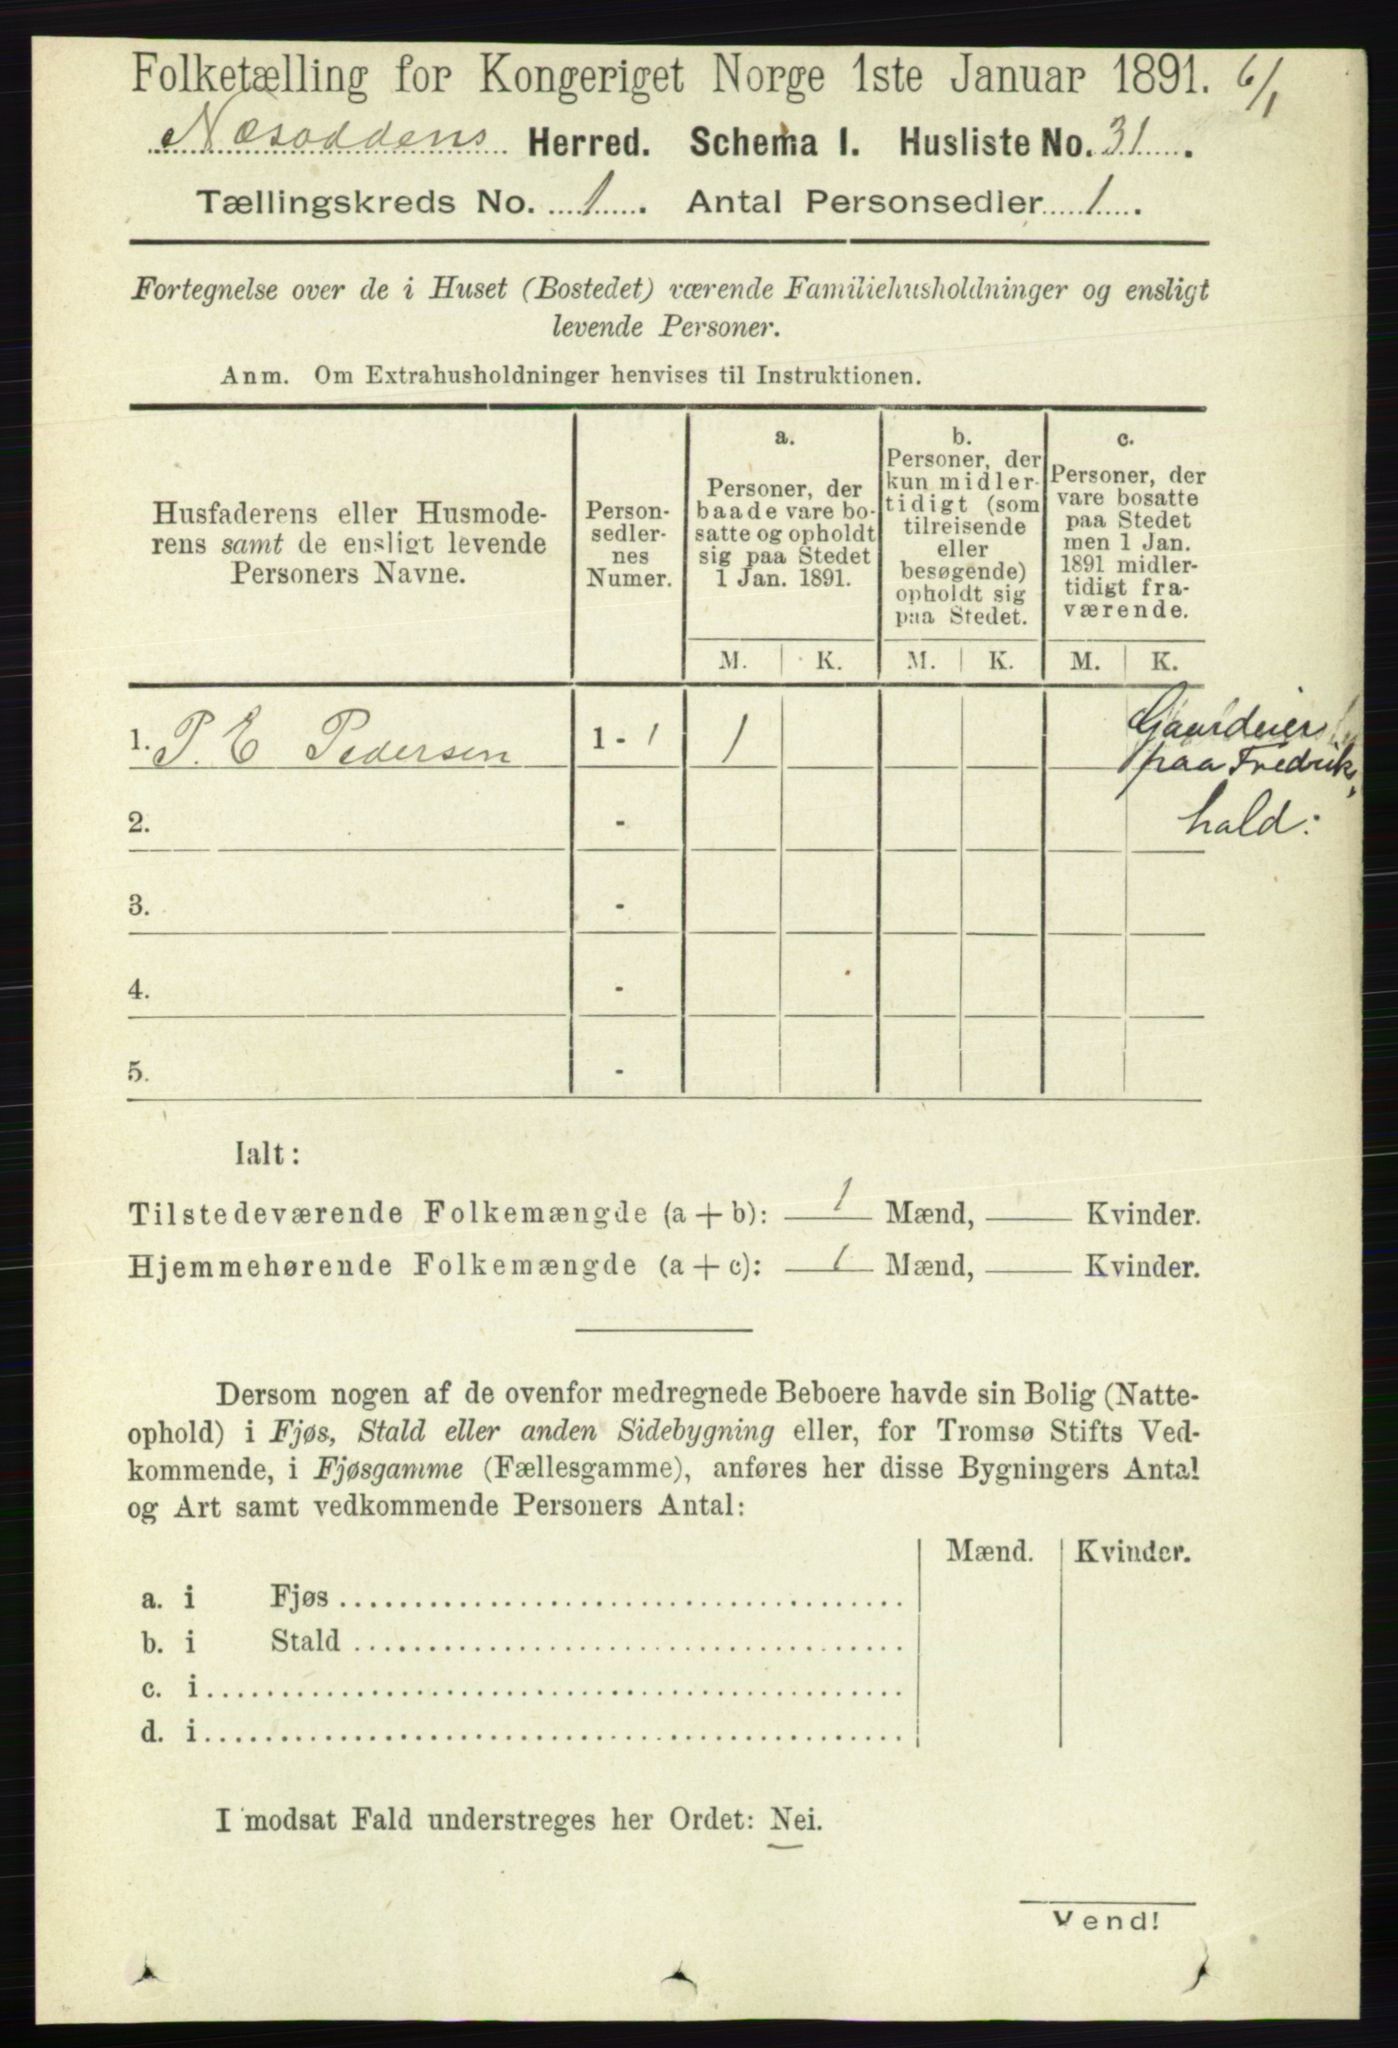 Folketælling for Kongeriget Norge 1ste Januar 1891. 6/1
Næsoddens Herred. Schema I. Husliste No. 31.
Tællingskreds No. 1. Antal Personsedler 1.
Fortegnelse over de i Huset (Bostedet) værende Familiehusholdninger og ensligt
levende Personer.
Anm. Om Extrahusholdninger henvises til Instruktionen.
Husfaderens eller Husmode-
rens samt de ensligt levende
Personers Navne.
Person-
sedler-
nes
Numer.
a.
Personer, der
baade vare bo-
satte og opholdt
sig paa Stedet
1 Jan. 1891.
b.
Personer, der
kun midler-
tidigt (som
tilreisende
eller
besøgende)
opholdt sig
paa Stedet.
c.
Personer, der
vare bosatte
paa Stedet
men 1 Jan.
1891 midler-
tidigt fra-
værende.
M. K. M. K. M. K.
1. P. E Pedersen 1 - 1 1
Gaardeier
paa Fredriks
hald.
2. -
3. -
4. -
5. -
Ialt:
Tilstedeværende Folkemængde (a + b): 1 Mænd, Kvinder.
Hjemmehørende Folkemængde (a + c): 1 Mænd, Kvinder.
Dersom nogen af de ovenfor medregnede Beboere havde sin Bolig (Natte-
ophold) i Fjøs, Stald eller anden Sidebygning eller, for Tromsø Stifts Ved-
kommende, i Fjøsgamme (Fællesgamme), anføres her disse Bygningers Antal
og Art samt vedkommende Personers Antal:
Mænd. Kvinder.
a. i Fjøs
b. i Stald
c. i
d. i
I modsat Fald understreges her Ordet: Nei.
Vend!